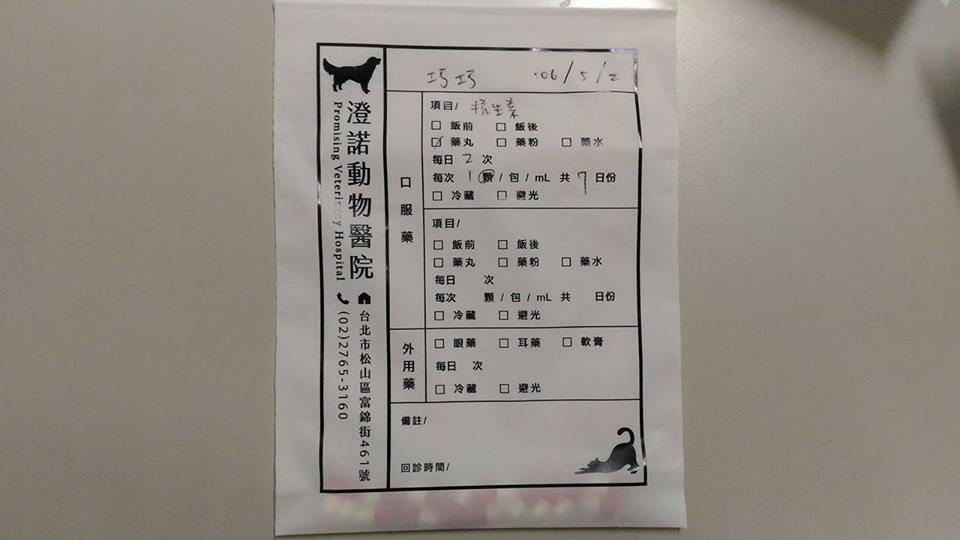 澄諾動物醫院
Promising Veterinary Hospital
台北市松山區富錦街461號
(02)2765-3160
巧巧 106/5/2
口服藥
項目/ 抗生素
□ 飯前 □ 飯後
☑ 藥丸 □ 藥粉 □ 藥水
每日 2 次
每次 1 顆 / 包 / mL 共 7 日份
□ 冷藏 □ 避光
項目/
□ 飯前 □ 飯後
□ 藥丸 □ 藥粉 □ 藥水
每日 次
每次 顆 / 包 / mL 共 日份
□ 冷藏 □ 避光
外用藥
□ 眼藥 □ 耳藥 □ 軟膏
每日 次
□ 冷藏 □ 避光
備註/
回診時間/